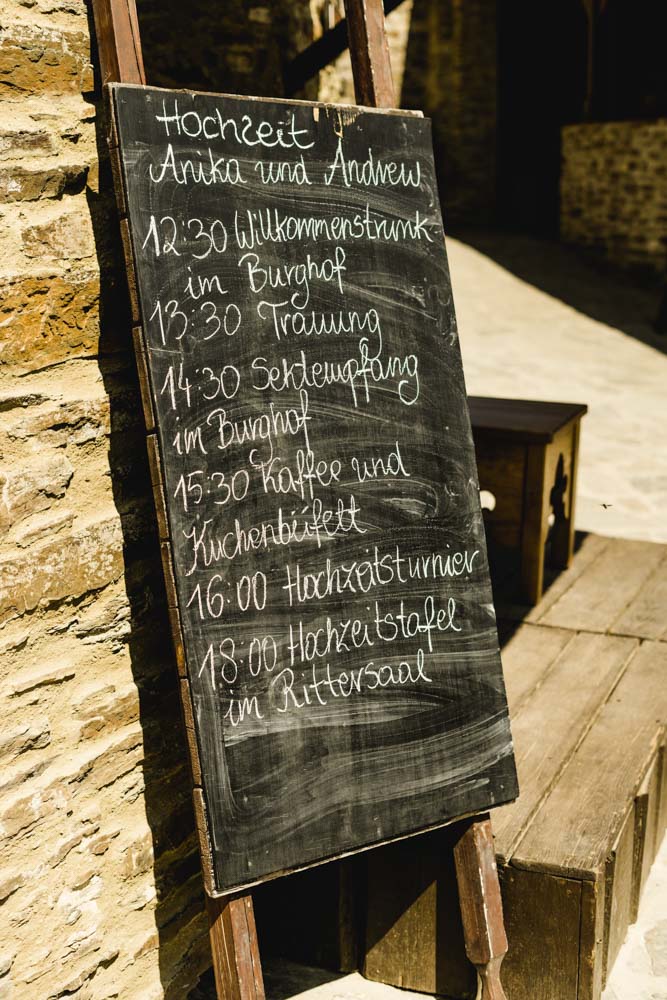 Hochzeit
Anika und Andrew
12:30 Willkommenstrunk
im Burghof
13:30 Trauung
14:30 Sektempfang
im Burghof
15:30 Kaffee und
Kuchenbüfett
16:00 Hochzeitsturnier
18:00 Hochzeitstafel
im Rittersaal